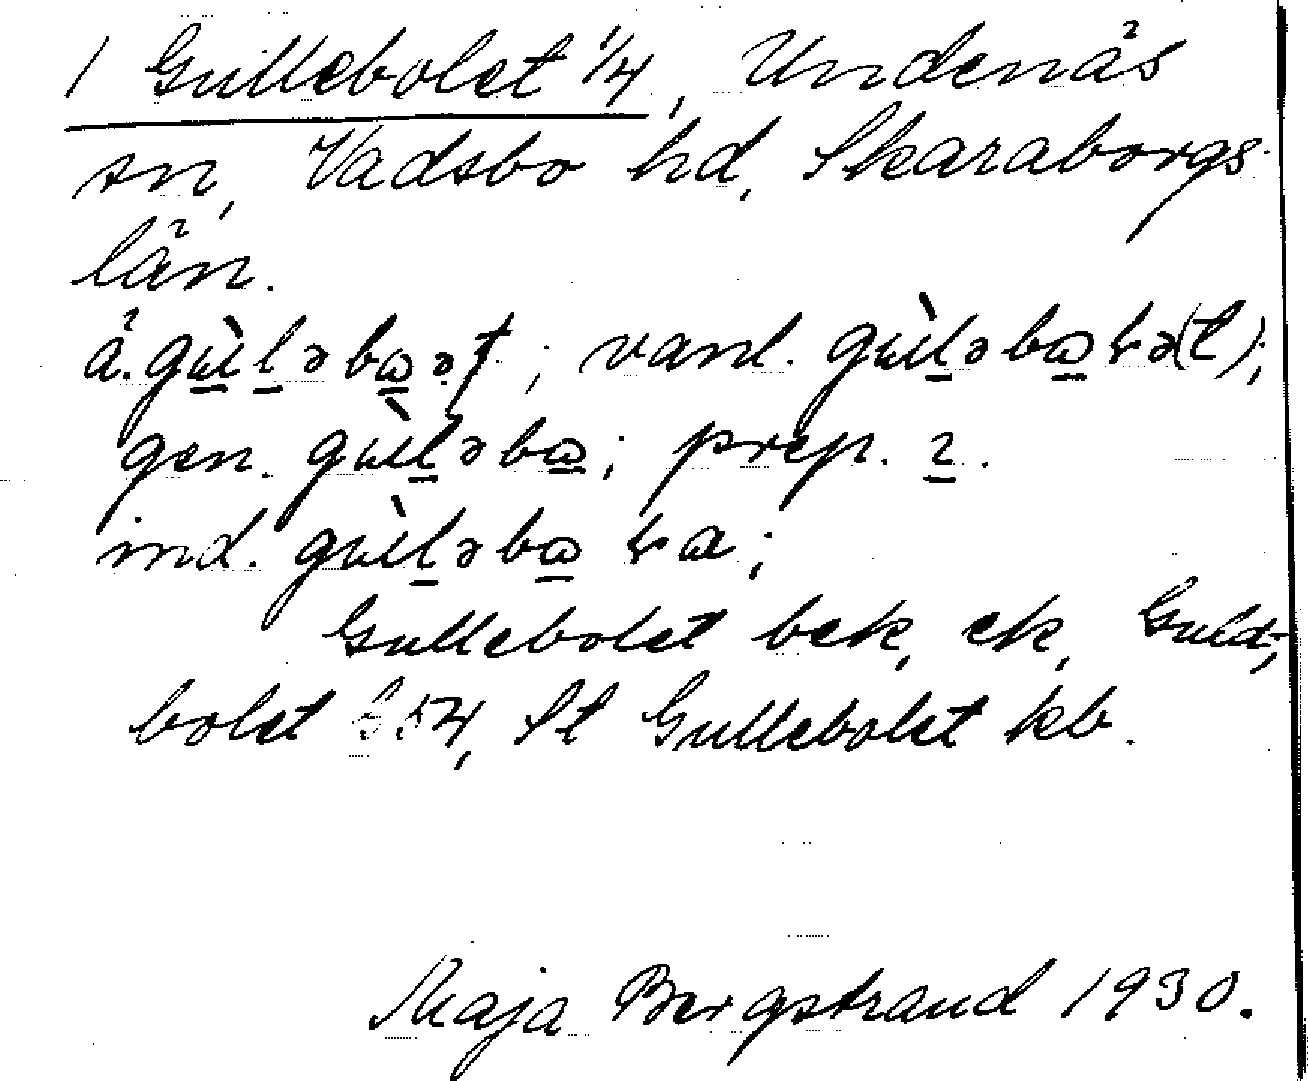 1 Gullebolet 1/4, Undenäs
sn, Vadsbo hd, Skaraborgs
län.
å. gùləbaət; vanl. gùləbaɽə(t);
gen. gùləba; prep. ɩ.
ind. gùləba ɽa;
Gullebolet bek, ek, Guld-
bolet 54, St Gullebolet kb.
Maja Bergstrand 1930.